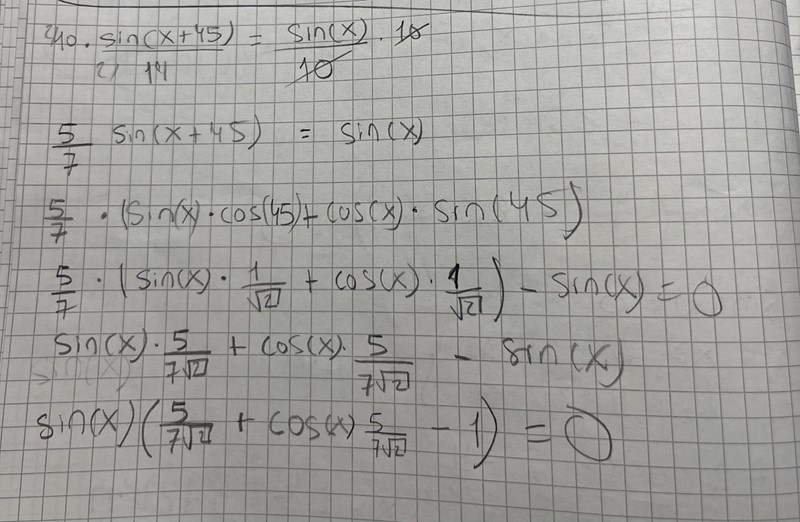 10 · sin(x+45)/14 = sin(x)/10 · 10
5/7 sin(x+45) = sin(x)
5/7 · (sin(x)·cos(45)+cos(x)·sin(45)
5/7 · (sin(x)·1/√2 + cos(x)·1/√2) - sin(x) = 0
sin(x)·5/7√2 + cos(x)·5/7√2 - sin(x)
sin(x)(5/7√2 + cos(x) 5/7√2 - 1) = 0